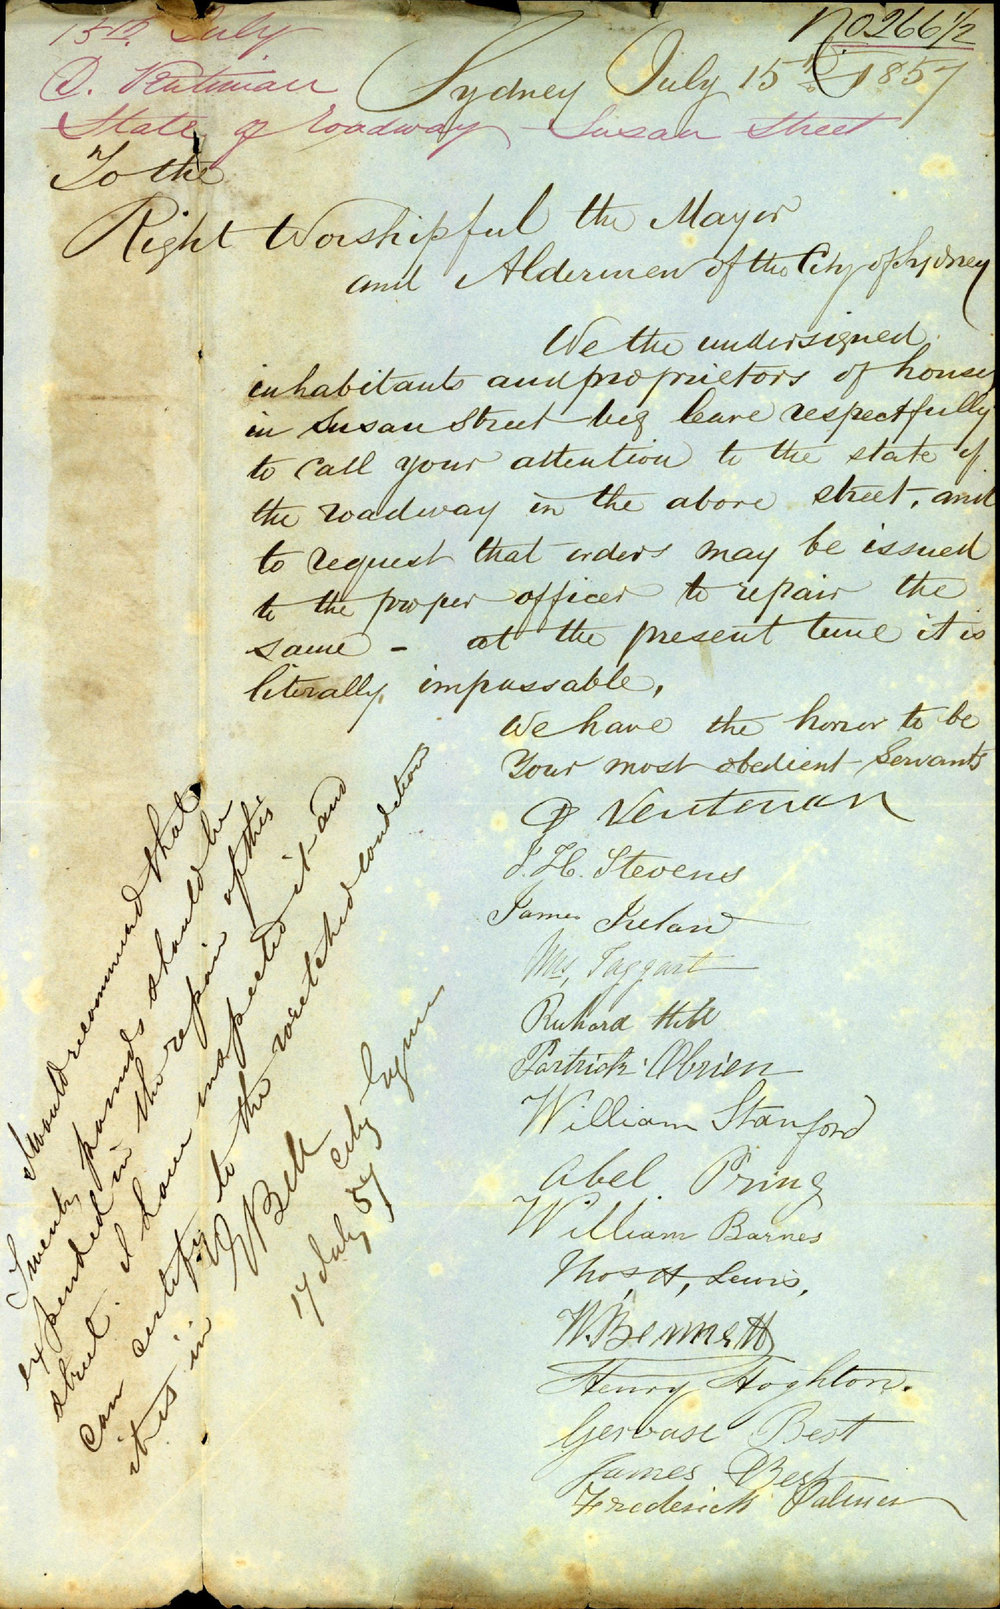 No 266 1/2
15th July
D. Ventiman
State of roadway - Susan Street
Sydney July 15th 1857
To the
Right Worshipful the Mayor
and Aldermen of the City of Sydney
We the undersigned
inhabitants and proprietors of houses
in Susan Street beg leave respectfully
to call your attention to the state of
the roadway in the above street, and
to request that orders may be issued
to the proper officer to repair the
same - at the present time it is
literally impassable,
We have the honor to be
Your most obedient Servants
D Ventiman
J. H. Stevens
James Ireland
Mrs Taggart
Richard Hill
Partrick Obrien
William Stanford
Abel Pring
William Barnes
Thos, H, Lewis,
W. Bennett
Henry Hoghton.
Gervase Best
James Best
Frederick Palmer
I would recommend that
Twenty pounds should be
expended in the repair of this
street. I have inspected it and
can certify to the wretched condition
it is in
E Bell
City Engineer
17 July 57